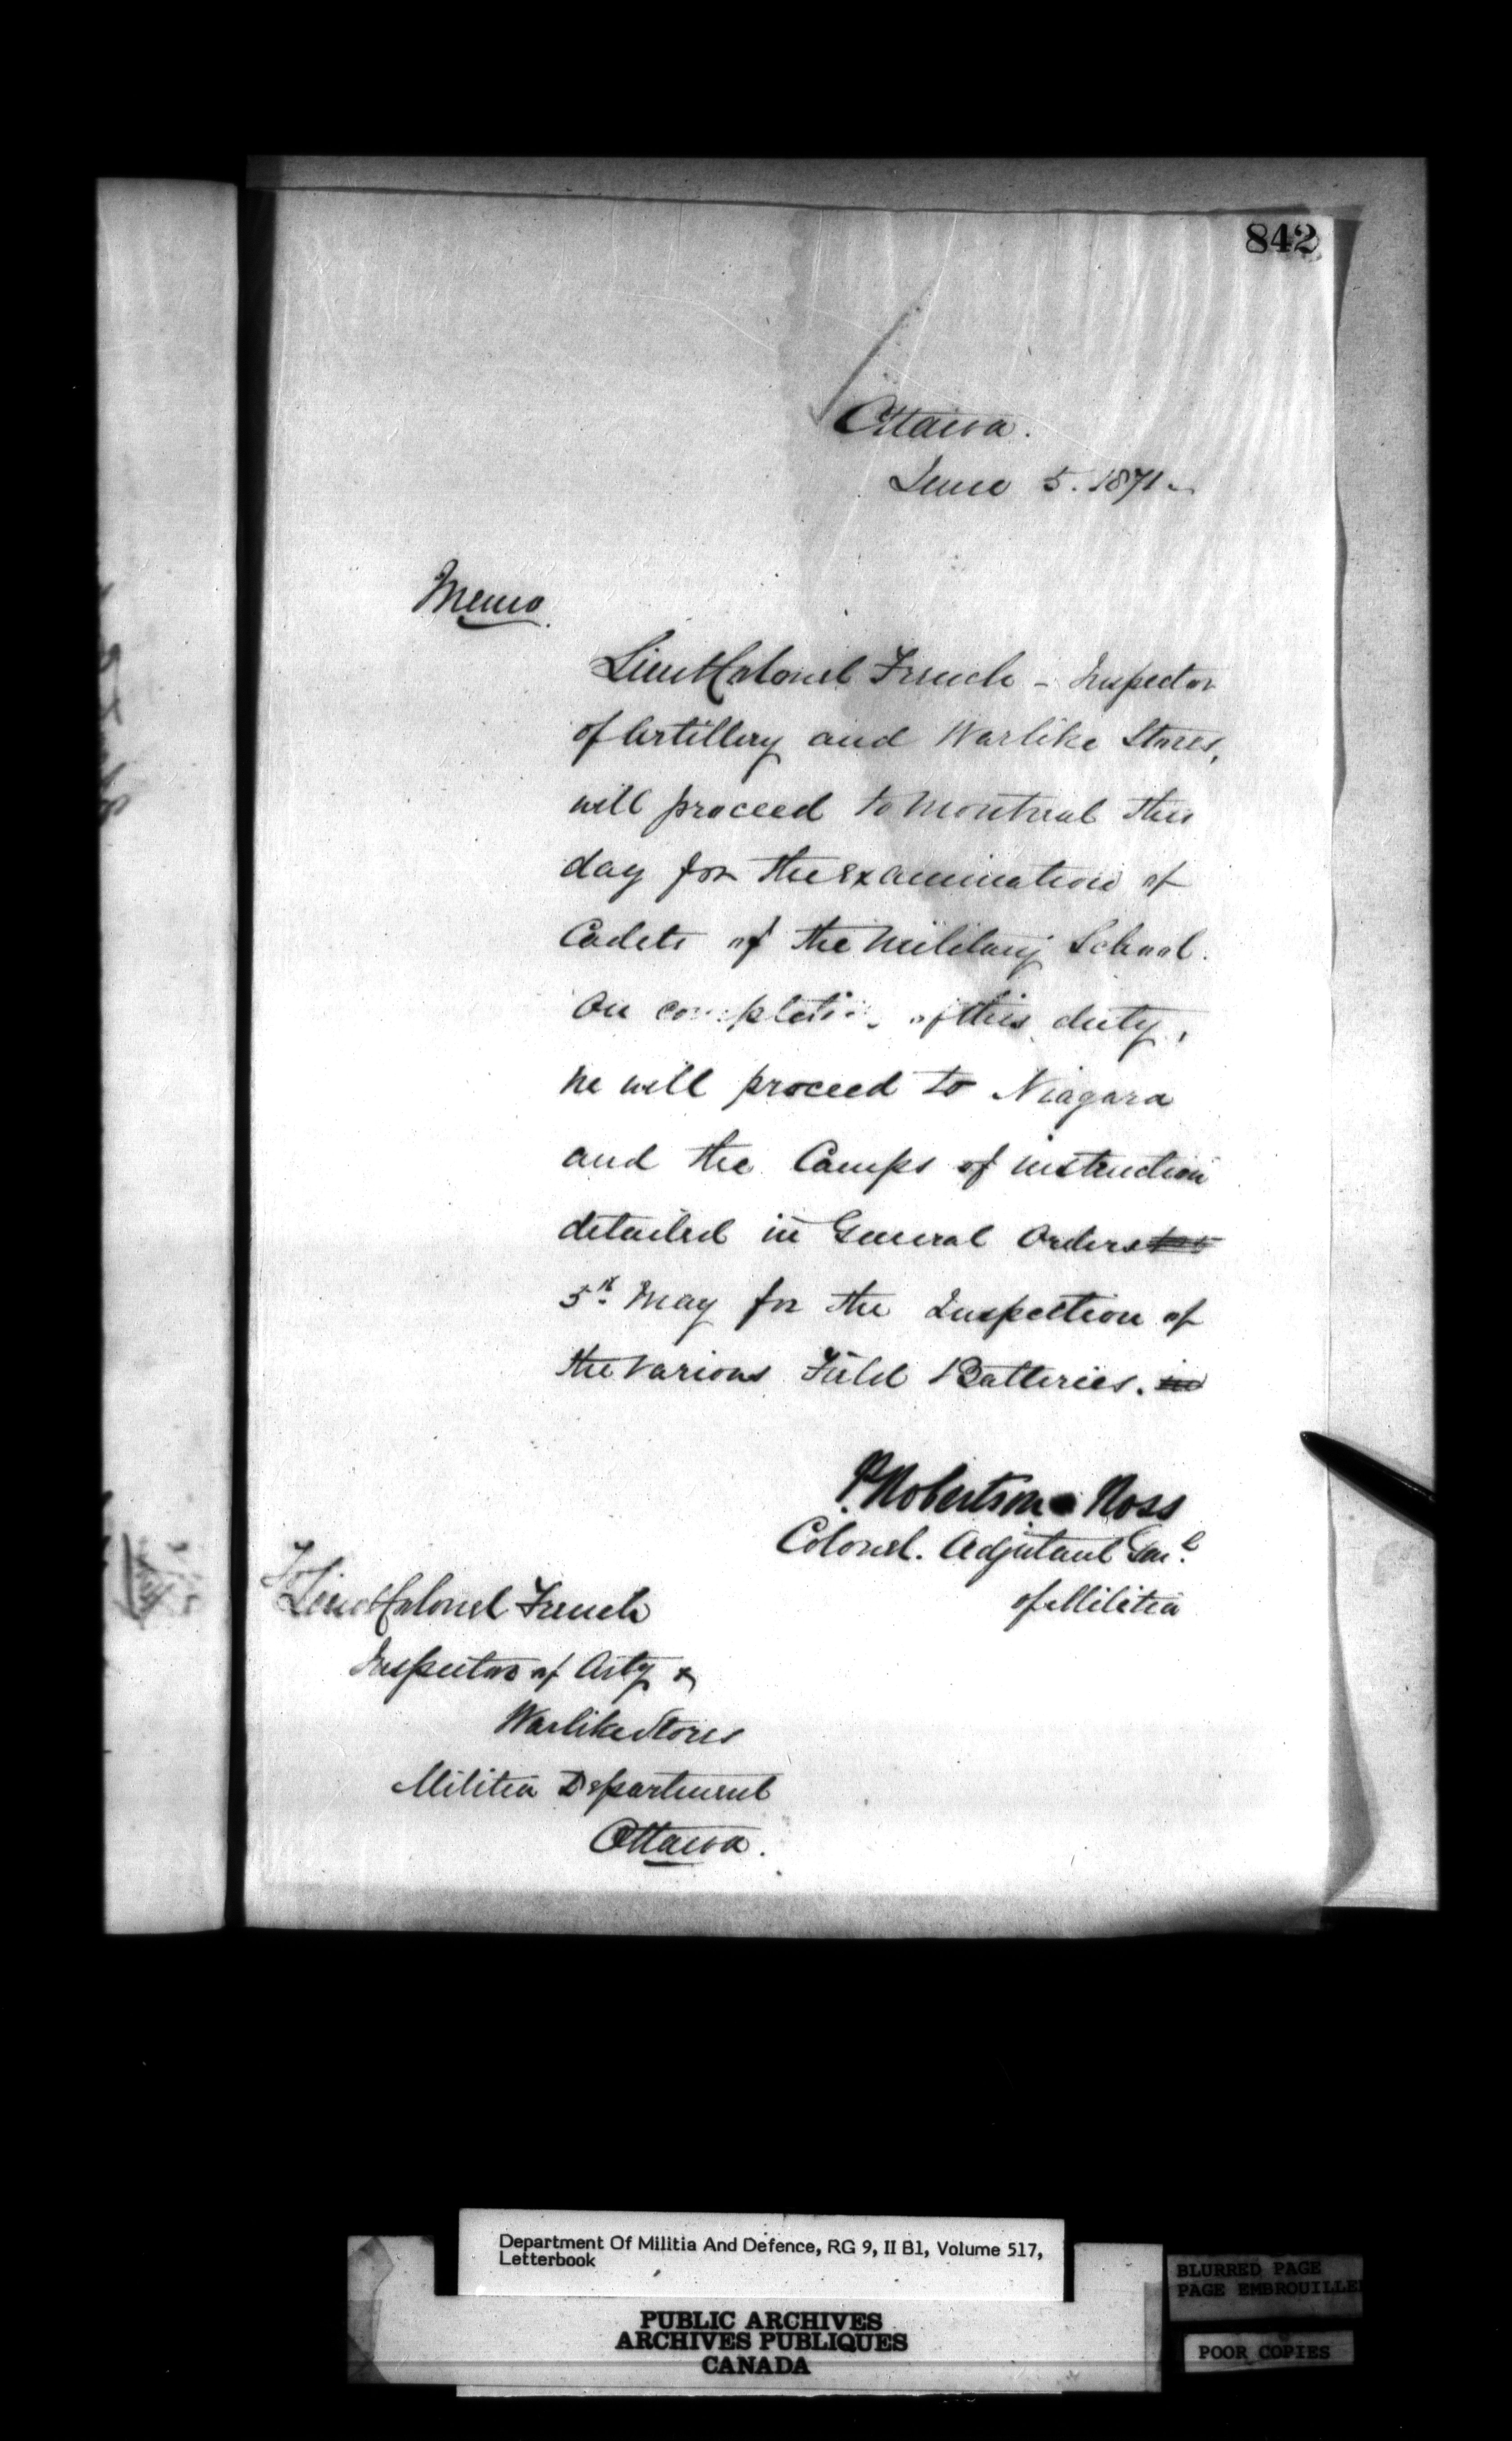 842
Ottawa.
June 5. 1871
Memo.
Lieut Colonel French - Inspector
of Artillery and Warlike Stores,
will proceed to Montreal this
day for the Examination of
Cadets of the Military School.
On completion of this duty,
he will proceed to Niagara
and the Camps of instruction
detailed in General Orders
5th May for the Inspection of
the various Field Batteries.
P. Robertson Ross
Colonel. Adjutant Genl.
of Militia
To
Lieut Colonel French
Inspector of Arty &
Warlike Stores
Militia Department
Ottawa.
Department Of Militia And Defence, RG 9, II B1, Volume 517,
Letterbook
PUBLIC ARCHIVES
ARCHIVES PUBLIQUES
CANADA
BLURRED PAGE
PAGE EMBROUILLEE
POOR COPIES